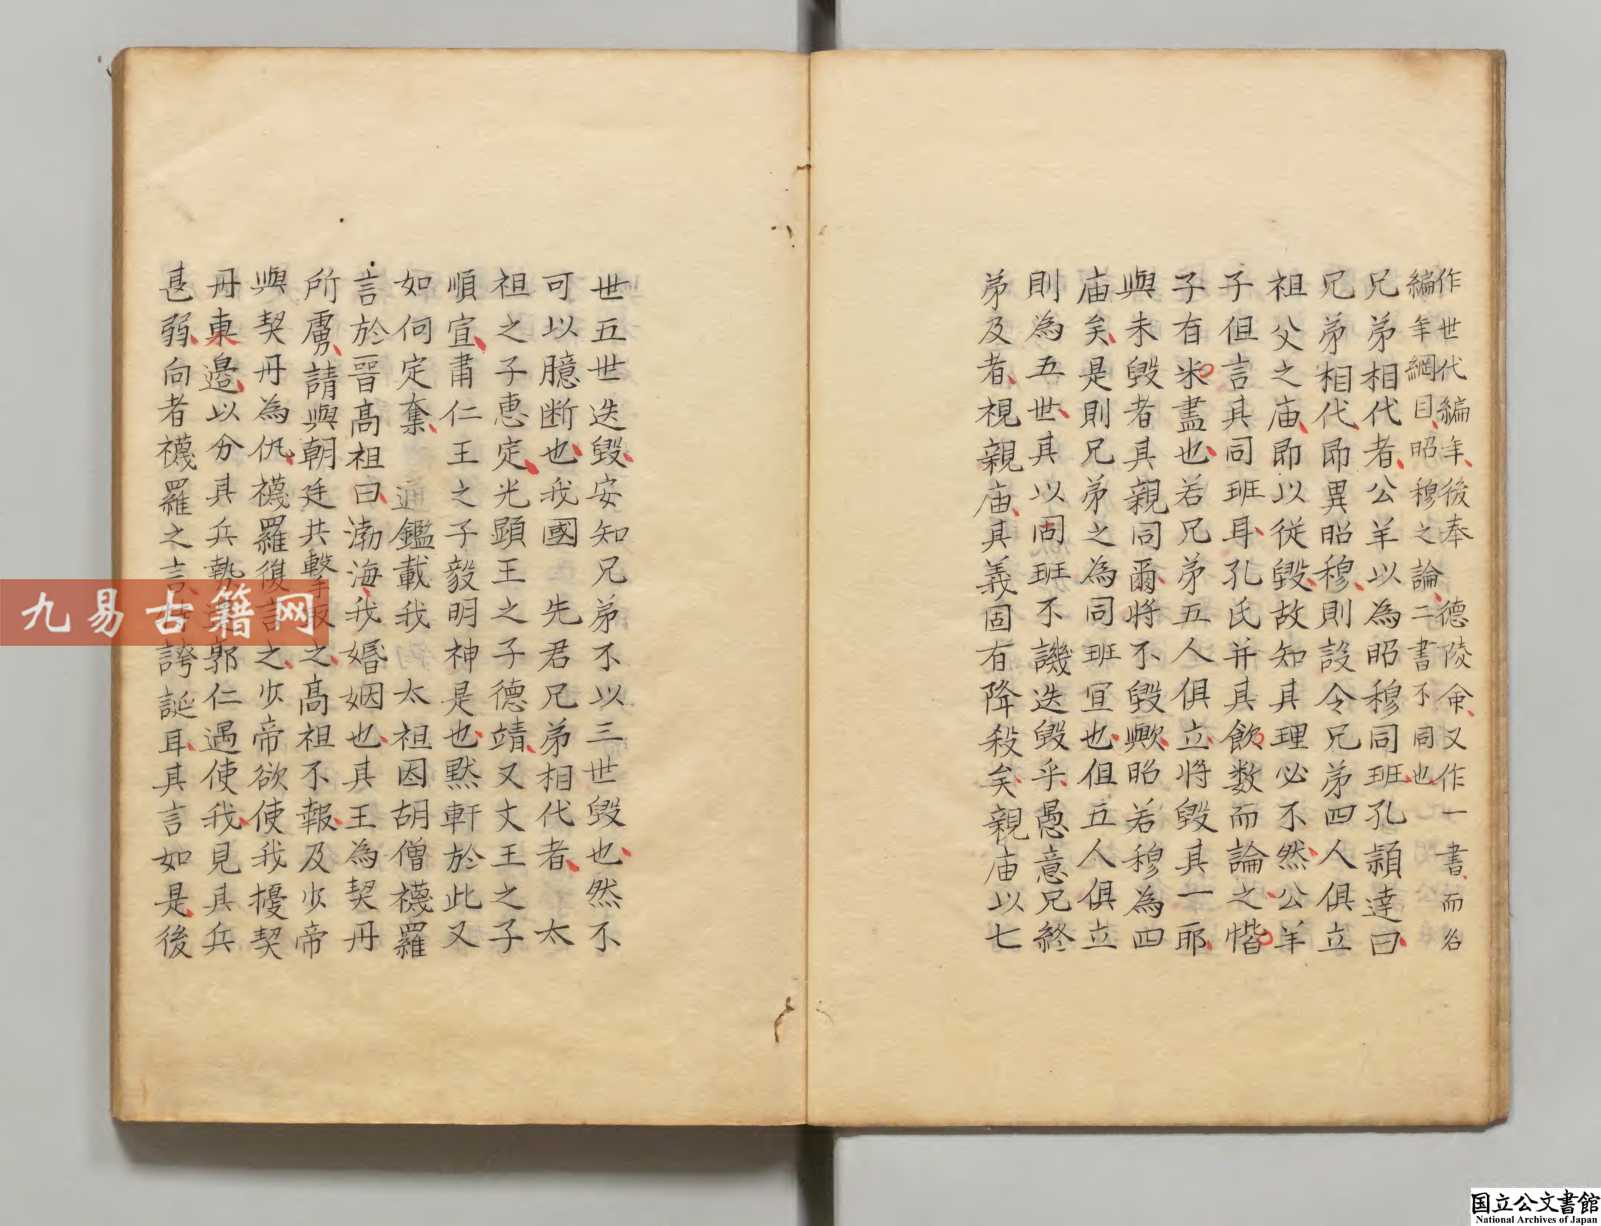 作世代編年後奉　德陵命又作一書而名
編年綱目昭穆之論二書不同也
兄弟相代者公羊以為昭穆同班孔頴達曰
兄弟相代即異昭穆則設令兄弟四人俱立
祖父之庙即以從毀故知其理必不然公羊
子但言其同班耳孔氏并其飲数而論之惜
子有米盡也若兄弟五人俱立將毀其一耶
與未毀者其親同爾將不毀歟昭若穆為四
庙矣是則兄弟之為同班宜也但五人俱立
則為五世其以同班不譏迭毀乎愚意兄終
弟及者視親庙其義固有降殺矣親庙以七
世五世迭毀安知兄弟不以三世毀也然不
可以臆断也我國　先君兄弟相代者　太
祖之子惠定光顕王之子德靖又文王之子
順宣肅仁王之子毅明神是也黙軒於此又
如何定奪　通鑑載我　太祖因胡僧襪羅
言於晋髙祖曰渤海我婚姻也其王為契丹
所虜請與朝廷共擊取之髙祖不報及少帝
與契丹為仇襪羅復言之少帝欲使我擾契
丹東邉以分其兵勢郭仁遇使我見其兵
甚弱向者襪羅之言誇誕耳其言如是後
九易古籍网
国立公文書館
National Archives of Japan